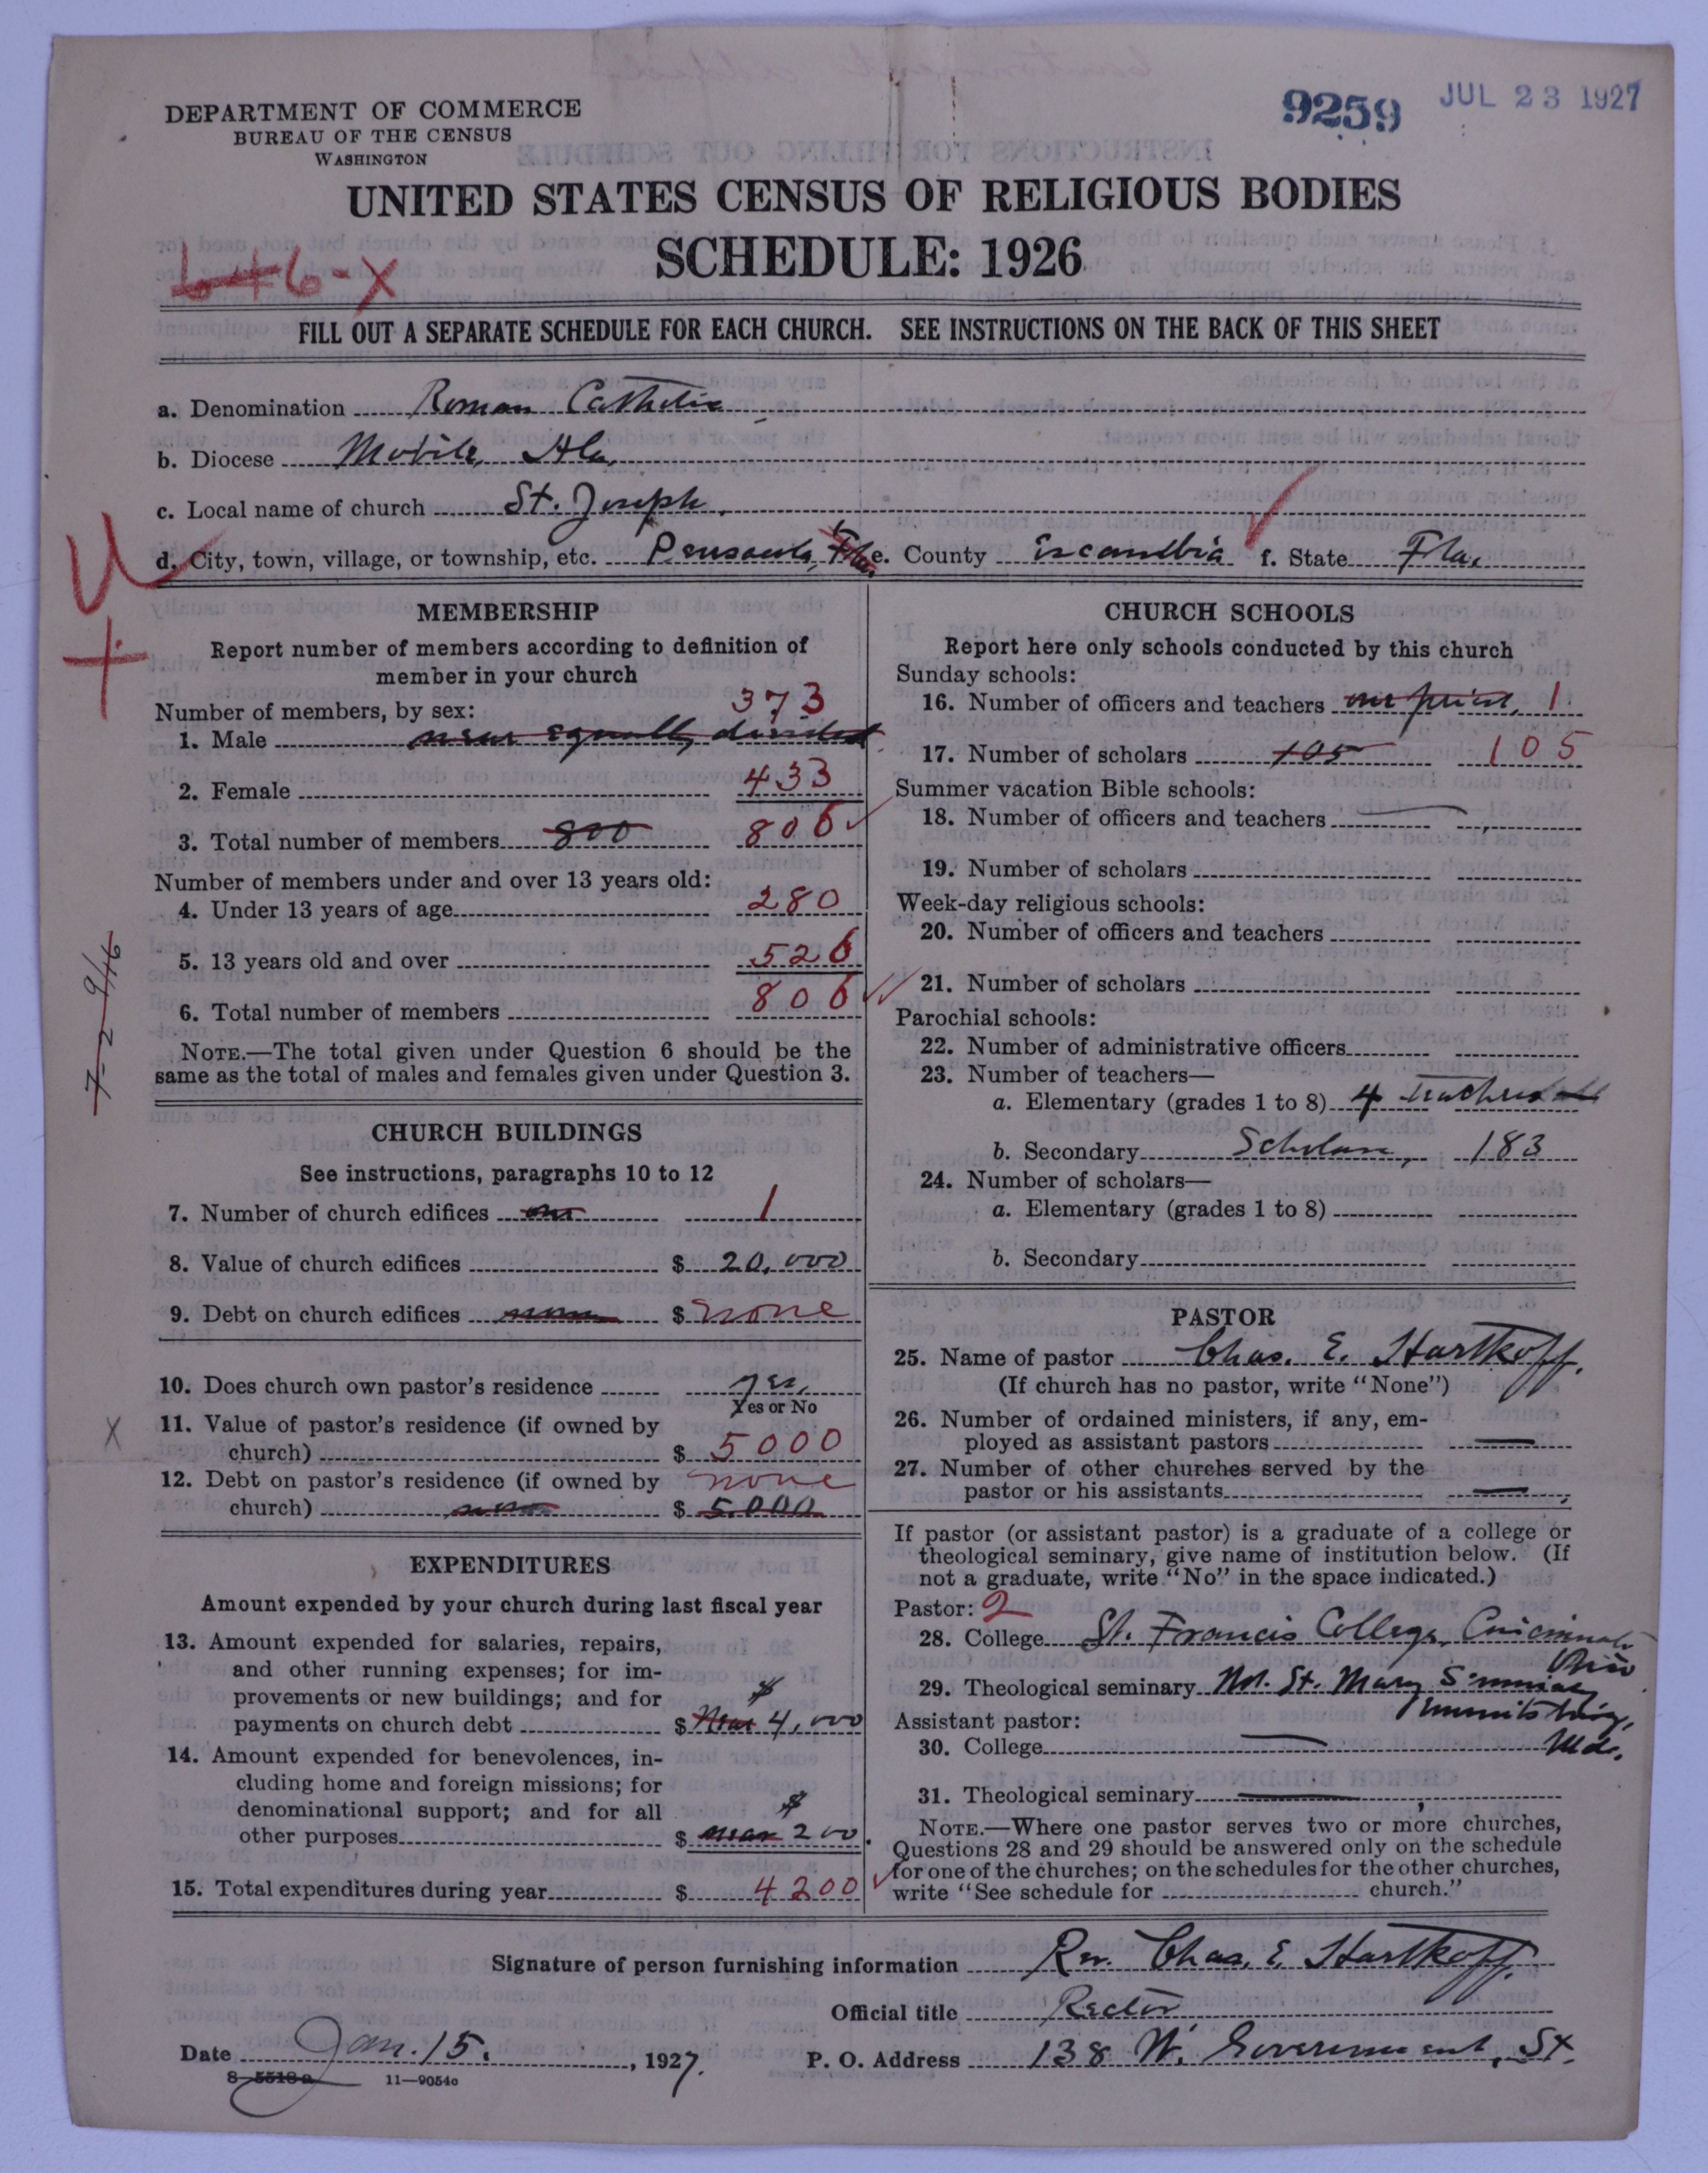 9259 JUL 23 1927
DEPARTMENT OF COMMERCE
BUREAU OF THE CENSUS
WASHINGTON
UNITED STATES CENSUS OF RELIGIOUS BODIES
SCHEDULE: 1926
646-X
FILL OUT A SEPARATE SCHEDULE FOR EACH CHURCH. SEE INSTRUCTIONS ON THE BACK OF THIS SHEET
a. Denomination Roman Catholic
b. Diocese Mobile, Ala.
c. Local name of church St. Joseph.
d. City, town, village, or township, etc. Pensacola, Fla. e. County Escambia f. State Fla.
MEMBERSHIP
Report number of members according to definition of
member in your church
Number of members, by sex: 373
1. Male near equally divided
2. Female 433
3. Total number of members 800 806
Number of members under and over 13 years old:
4. Under 13 years of age 280
5. 13 years old and over 526
6. Total number of members 806
NOTE.—The total given under Question 6 should be the
same as the total of males and females given under Question 3.
7-2 9/16
CHURCH BUILDINGS
See instructions, paragraphs 10 to 12
7. Number of church edifices one 1
8. Value of church edifices $ 20,000
9. Debt on church edifices none $ none
10. Does church own pastor's residence yes,
Yes or No
X
11. Value of pastor's residence (if owned by
church) $ 5000
12. Debt on pastor's residence (if owned by none
church) none $ 5.000
EXPENDITURES
Amount expended by your church during last fiscal year
13. Amount expended for salaries, repairs,
and other running expenses; for im-
provements or new buildings; and for $
payments on church debt $ Near 4,000
14. Amount expended for benevolences, in-
cluding home and foreign missions; for
denominational support; and for all $
other purposes $ near 200.
15. Total expenditures during year $ 4200
CHURCH SCHOOLS
Report here only schools conducted by this church
Sunday schools:
16. Number of officers and teachers one priest, 1
17. Number of scholars 105 105
Summer vacation Bible schools:
18. Number of officers and teachers
19. Number of scholars
Week-day religious schools:
20. Number of officers and teachers
21. Number of scholars
Parochial schools:
22. Number of administrative officers
23. Number of teachers—
a. Elementary (grades 1 to 8) 4 teachers
b. Secondary Scholars, 183
24. Number of scholars—
a. Elementary (grades 1 to 8)
b. Secondary
PASTOR
25. Name of pastor Chas. E. Hartkoff.
(If church has no pastor, write "None")
26. Number of ordained ministers, if any, em-
ployed as assistant pastors —
27. Number of other churches served by the
pastor or his assistants —
If pastor (or assistant pastor) is a graduate of a college or
theological seminary, give name of institution below. (If
not a graduate, write "No" in the space indicated.)
Pastor: 2
28. College St. Francis College, Cincinnati
Ohio
29. Theological seminary Mt. St. Mary Seminary
Emmitsburg,
Assistant pastor:
30. College — Md.
31. Theological seminary —
NOTE.—Where one pastor serves two or more churches,
Questions 28 and 29 should be answered only on the schedule
for one of the churches; on the schedules for the other churches,
write "See schedule for church."
Signature of person furnishing information Rev. Chas. E. Hartkoff.
Official title Rector
Date Jan. 15, 1927. P. O. Address 138 W. Government, St.
8—5518a 11—9054c